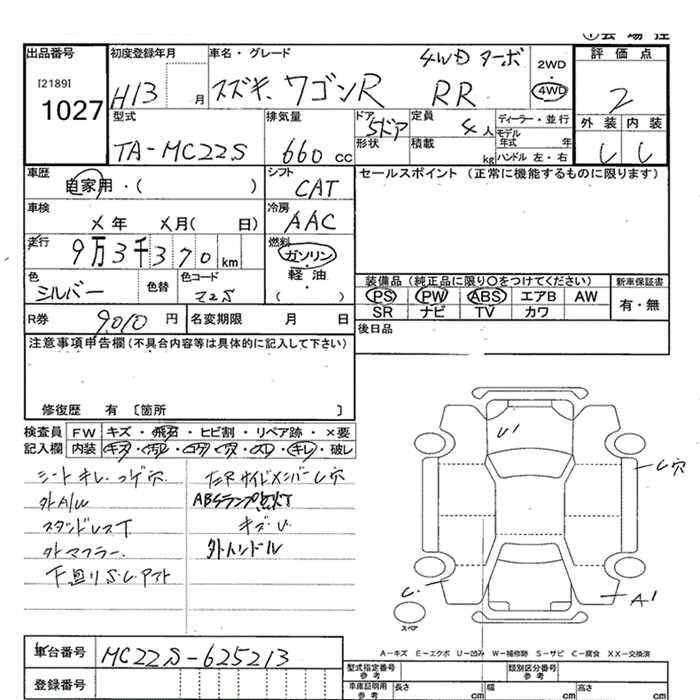 出品番号
[2189]
1027
初度登録年月
H13 月
車名・グレード
スズキ ワゴンR RR
4WD ターボ
2WD
4WD
評価点
2
外装 内装
型式
TA-MC22S
排気量
660 cc
ドア
5ドア
形状
定員
4人
積載
kg
ディーラー・並行
モデル
年式 年
ハンドル 左・右
車歴
自家用・( )
シフト
CAT
セールスポイント (正常に機能するものに限ります)
車検
X年 X月( 日)
冷房
AAC
走行
9万3千370 km
燃料
ガソリン
軽油
( )
色
シルバー
色替
色コード
Z2S
装備品 (純正品に限り〇をつけてください)
PS PW ABS エアB AW
SR ナビ TV カワ
新車保証書
有・無
R券
9010 円
名変期限 月 日
後日品
注意事項申告欄 (不具合内容等は具体的に記入して下さい)
修復歴 有 〔箇所 〕
検査員
記入欄
FW キズ・飛石・ヒビ割・リペア跡・×要
内装 キズ・汚レ・コゲ・穴・スレ・キレ・破レ
シートキレ コゲ穴
外A/W
スタッドレスT
外マフラー
下廻りS.C.アト
左右サイドメンバーU穴
ABSランプ点灯
キズ・U
外ハンドル
U1
U穴
A1
スペア
A-キズ E-エクボ U-凹み W-補修跡 S-サビ C-腐食 XX-交換済
車台番号
MC22S-625213
登録番号
型式指定番号
参考
類別区分番号
参考
車庫証明用
参考
長さ cm
幅 cm
高さ cm